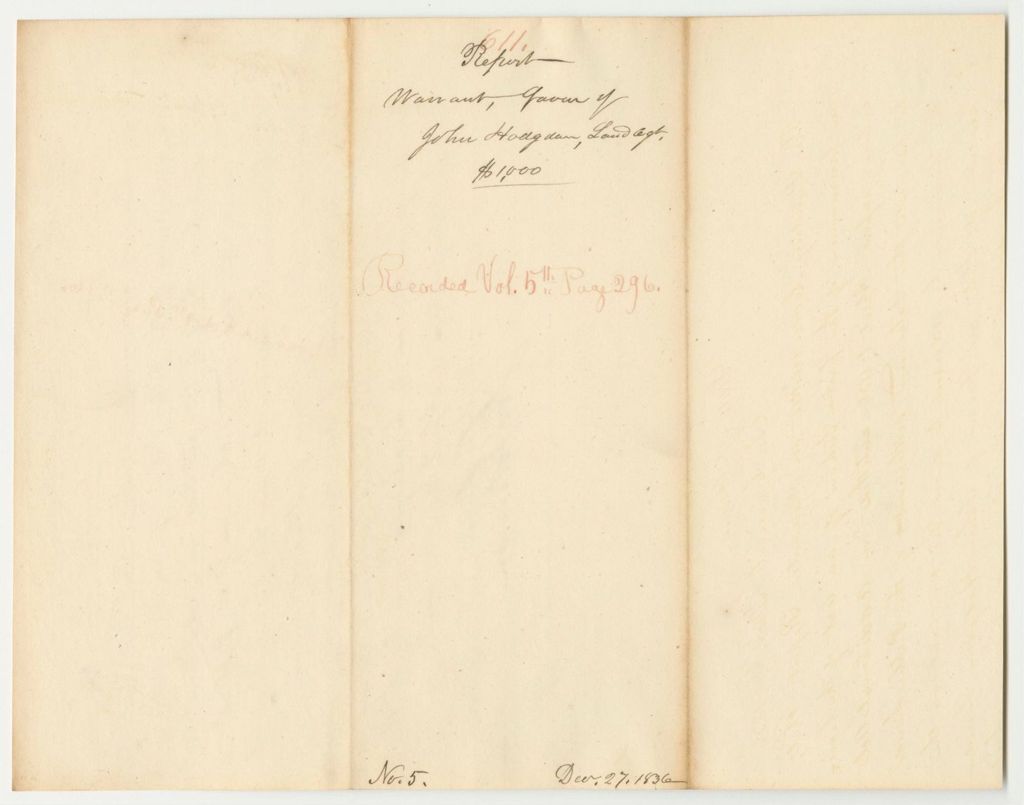 611.
Report
Warrant, favour of
John Hodgdon, Land Agt.
$1,000
Recorded Vol. 5th Page 296.
No. 5. Decr. 27. 1836